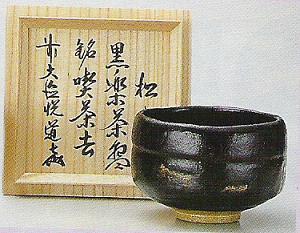 松
黒楽茶碗
銘 喫茶去
前大徳悦道(花押)